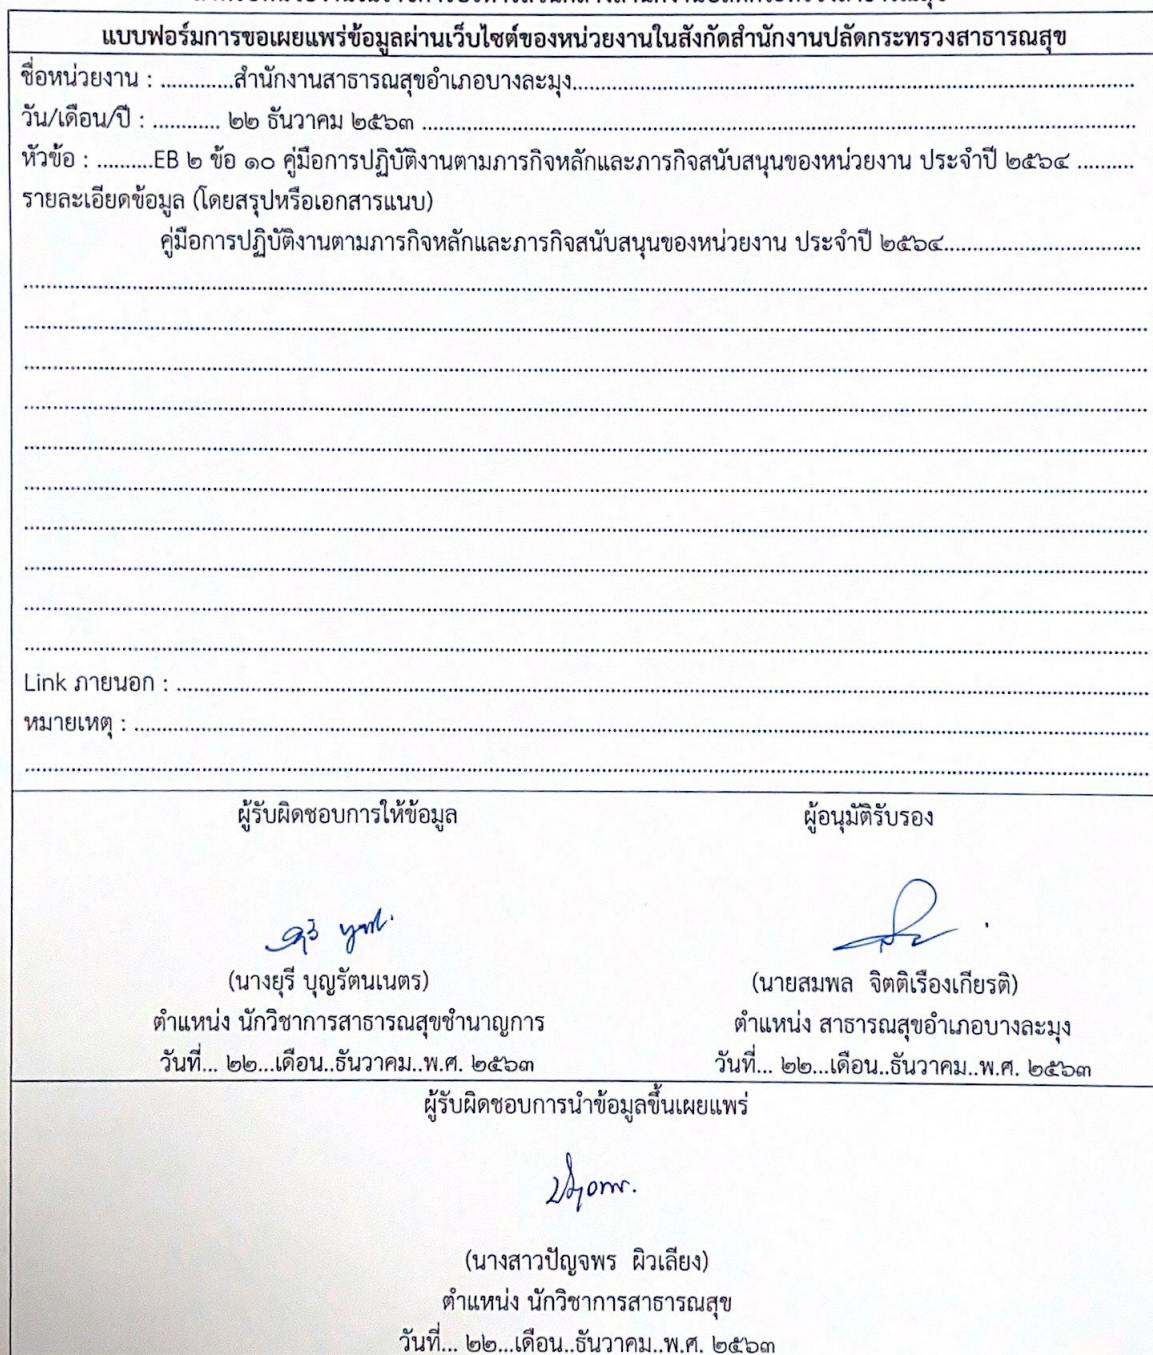 แบบฟอร์มการขอเผยแพร่ข้อมูลผ่านเว็บไซต์ของหน่วยงานในสังกัดสำนักงานปลัดกระทรวงสาธารณสุข
ชื่อหน่วยงาน : .............สำนักงานสาธารณสุขอำเภอบางละมุง....................
วัน/เดือน/ปี : ........... ๒๒ ธันวาคม ๒๕๖๓ ....................
หัวข้อ : ..........EB ๒ ข้อ ๑๐ คู่มือการปฏิบัติงานตามภารกิจหลักและภารกิจสนับสนุนของหน่วยงาน ประจำปี ๒๕๖๔ ..........
รายละเอียดข้อมูล (โดยสรุปหรือเอกสารแนบ)
คู่มือการปฏิบัติงานตามภารกิจหลักและภารกิจสนับสนุนของหน่วยงาน ประจำปี ๒๕๖๔....................
Link ภายนอก : ....................
หมายเหตุ : ....................
ผู้รับผิดชอบการให้ข้อมูล
ผู้อนุมัติรับรอง
(นางยุรี บุญรัตนเนตร)
(นายสมพล จิตติเรืองเกียรติ)
ตำแหน่ง นักวิชาการสาธารณสุขชำนาญการ
ตำแหน่ง สาธารณสุขอำเภอบางละมุง
วันที่... ๒๒...เดือน..ธันวาคม..พ.ศ. ๒๕๖๓
วันที่... ๒๒...เดือน..ธันวาคม..พ.ศ. ๒๕๖๓
ผู้รับผิดชอบการนำข้อมูลขึ้นเผยแพร่
(นางสาวปัญจพร ผิวเลียง)
ตำแหน่ง นักวิชาการสาธารณสุข
วันที่... ๒๒...เดือน..ธันวาคม..พ.ศ. ๒๕๖๓